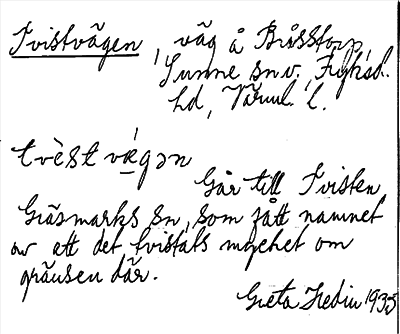 Tvistvägen, väg å Brosstorp,
Sunne sn v., Fryksd.
hd, Värml. l.
tvèst væ̀gən
Går till Tvisten
Gräsmarks sn, som fått namnet
av att det tvistats mycket om
gränsen där.
Greta Hedin 1935